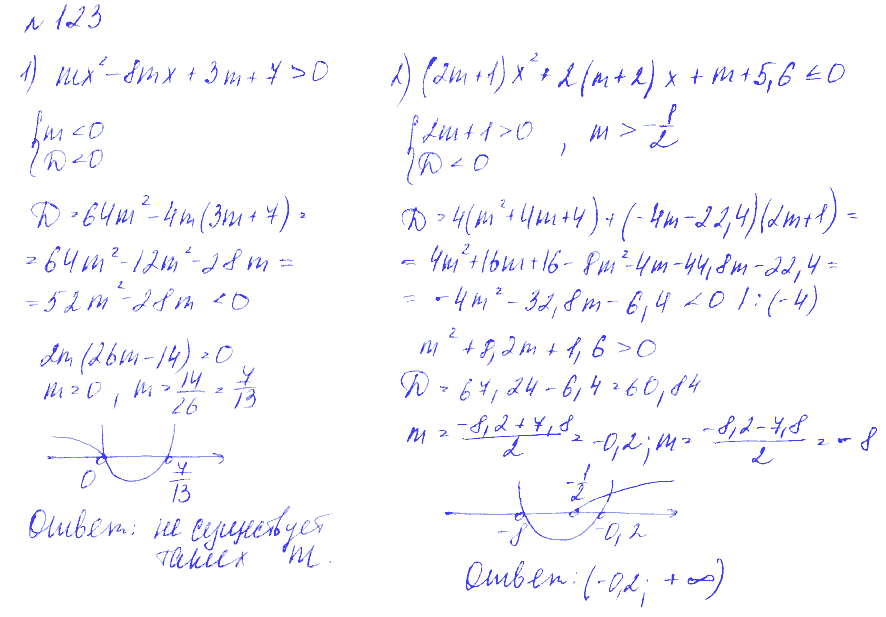 № 123
1) mx² - 8mx + 3m + 7 > 0
{ m < 0
{ D < 0
D = 64m² - 4m(3m + 7) =
= 64m² - 12m² - 28m =
= 52m² - 28m < 0
2m(26m - 14) = 0
m = 0, m = 14/26 = 7/13
0 7/13
Ответ: не существует
таких m.
2) (2m+1)x² + 2(m+2)x + m + 5,6 ≤ 0
{ 2m + 1 > 0 , m > -1/2
{ D < 0
D = 4(m² + 4m + 4) + (-4m - 22,4)(2m+1) =
= 4m² + 16m + 16 - 8m² - 4m - 44,8m - 22,4 =
= -4m² - 32,8m - 6,4 < 0 | : (-4)
m² + 8,2m + 1,6 > 0
D = 67,24 - 6,4 = 60,84
m = (-8,2 + 7,8)/2 = -0,2; m = (-8,2 - 7,8)/2 = -8
-1/2
-8 -0,2
Ответ: (-0,2; +∞)